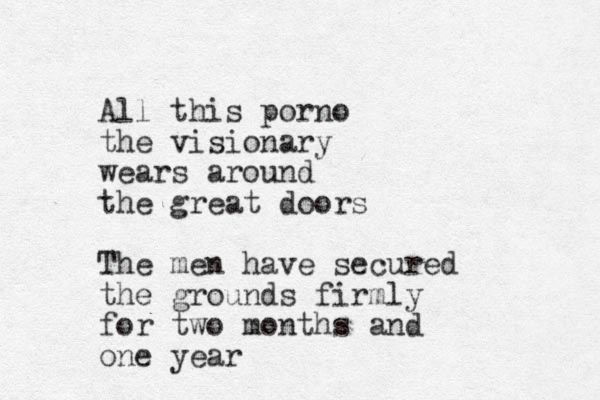 All this porno
the visionary
wears around
the great doors

The men have secured
the grounds firmly
for two months and
one year